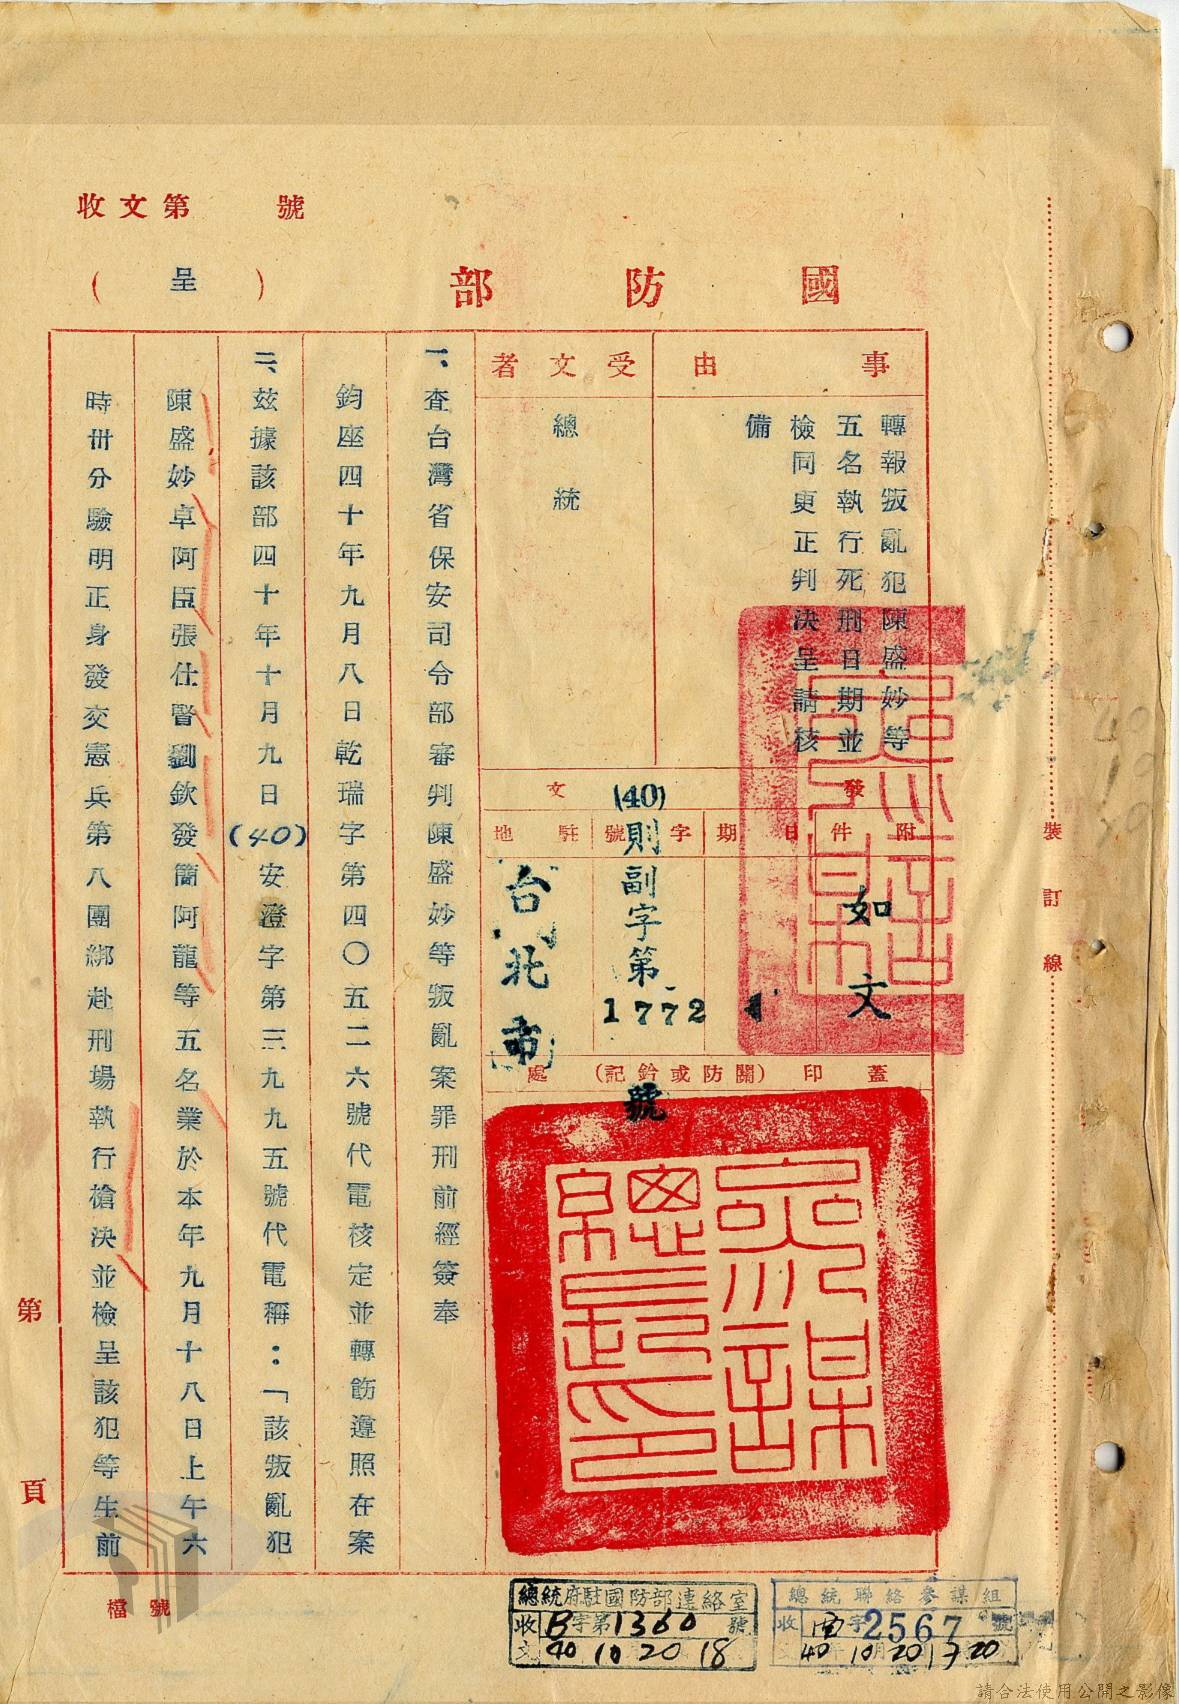 收文第 號
國防部
(呈)
事由
轉報叛亂犯陳盛妙等
五名執行死刑日期並
檢同更正判決呈請核
備
受文者
總統
發文
附件
日期
字號
駐地
如文
(40)則副字第1772號
台北市
蓋印(關防或鈐記)處
參謀總長印
一、查台灣省保安司令部審判陳盛妙等叛亂案罪刑前經簽奉
鈞座四十年九月八日乾瑞字第四〇五二六號代電核定並轉飭遵照在案
二、茲據該部四十年十月九日(40)安澄字第三九九五號代電稱：「該叛亂犯
陳盛妙卓阿臣張仕賢劉欽發簡阿龍等五名業於本年九月十八日上午六
時卅分驗明正身發交憲兵第八團綁赴刑場執行槍決並檢呈該犯等生前
裝訂線
第 頁
檔號
總統聯絡參謀組
收文 字2567號
40 10 20 1720
總統府駐國防部連絡室
收文 B字第1360號
40 10 20 18
請合法使用公開之影像